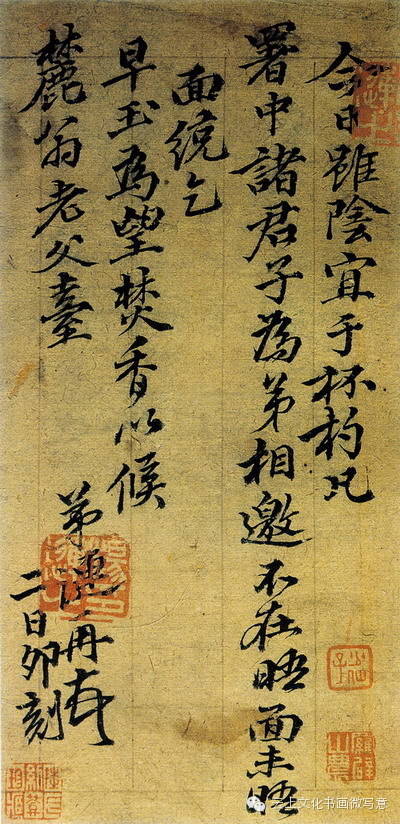 今日雖陰宜于杯杓凡
署中諸君子為弟相邀不在晤面未晤
面統乞
早玉為望焚香以候
麓翁老父臺
弟漣再頓
二日卯刻
三上文化书画微写意